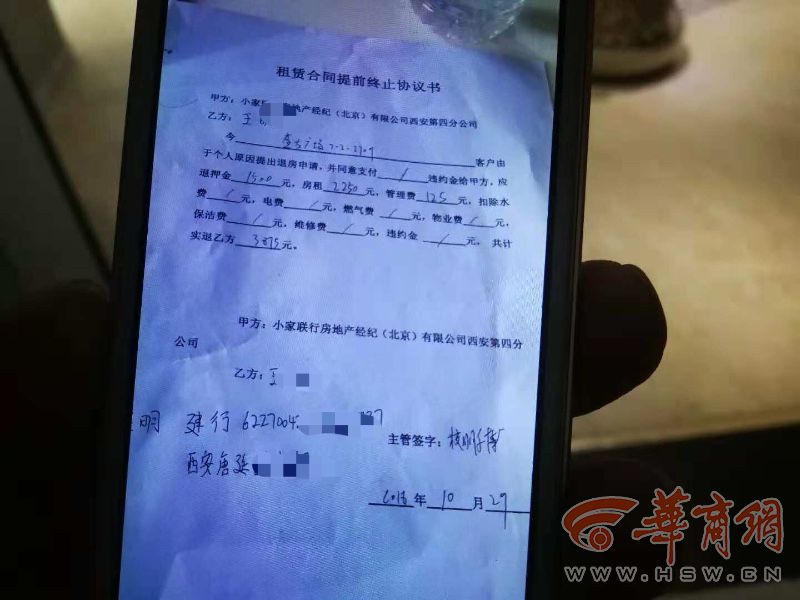 租赁合同提前终止协议书
甲方：小家联 地产经纪（北京）有限公司西安第四分公司
乙方：王
今 2-2-2709 客户由
于个人原因提出退房申请，并同意支付 / 违约金给甲方，应
退押金 1500 元，房租 2250 元，管理费 125 元，扣除水
费 / 元，电费 / 元，燃气费 / 元，物业费 / 元，
保洁费 / 元，维修费 / 元，违约金 / 元，共计
实退乙方 3875 元。
甲方：小家联行房地产经纪（北京）有限公司西安第四分
公司
乙方：王
明 建行 6227004
主管签字：
西安唐延
年 10 月 29
華商網
WWW.HSW.CN